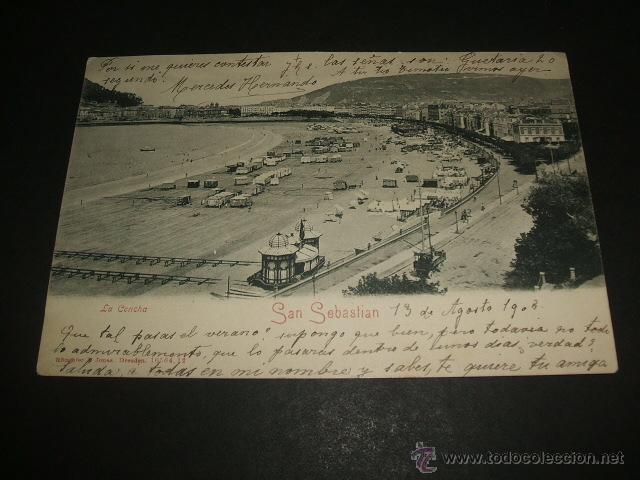 Por si me quieres contestar tте. las señas son: Guetaria 20
segundo. Mercedes Hernando A tu tio Timoteo vimos ayer
La Concha
San Sebastian 13 de Agosto 1903.
Que tal pasas el verano? supongo que bien, pero todavia no todo
lo admirablemente, que lo pasarás dentro de unos dias, verdad?
Römmler & Jonas, Dresden. 16164.12
Saluda, a todas en mi nombre y sabes, te quiere tu amiga
www.todocoleccion.net